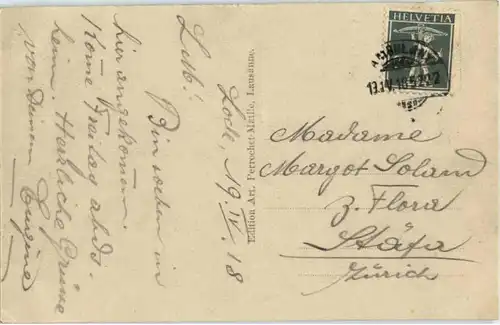 Locle, 19 IV. 18
Lieb!
Bin soeben in
hier angekommen.
Komme Freitag abds.
heim. Herzliche Grüsse
von Deinem Eugène
Edition Art. Perrochet-Matile, Lausanne.
HELVETIA
Madame
Margot Solam
z. Flora
Stäfa
Zürich